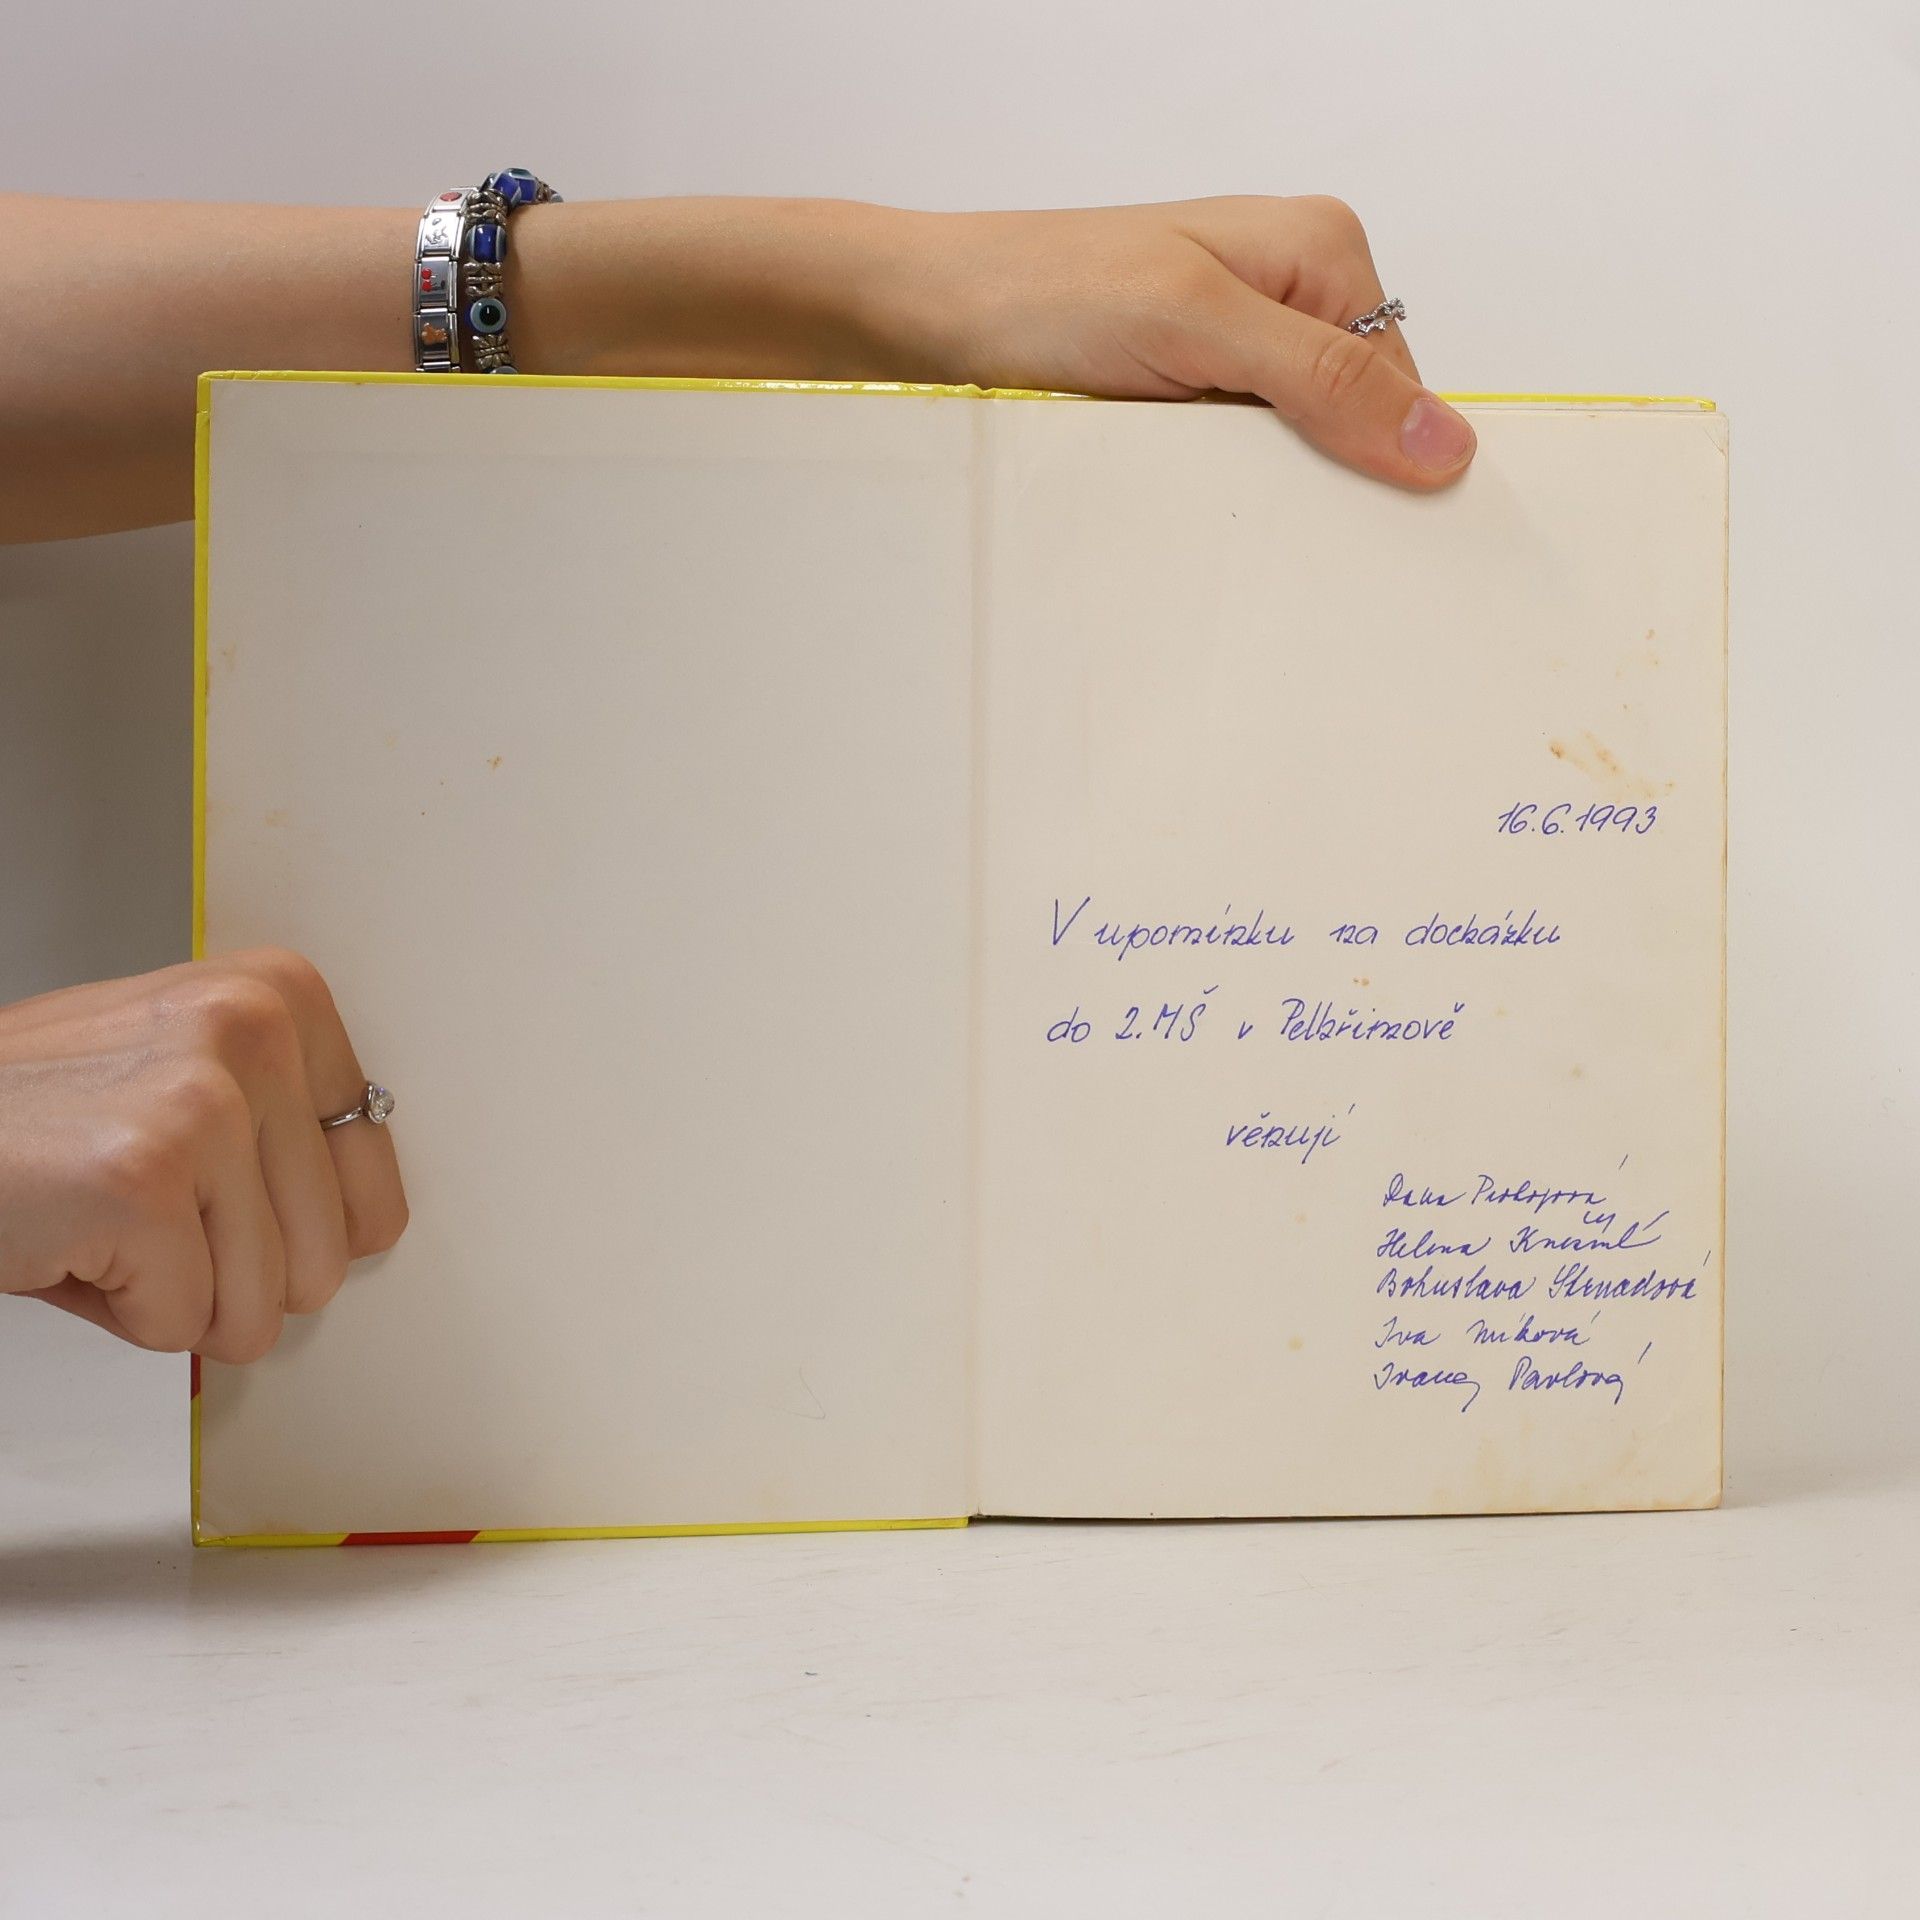 16.6.1993
V upomínku na docházku
do 2.MŠ v Pelhřimově
věnují
Dana Prokopová
Helena
Bohuslava Strnadová
Iva Míková
Ivana Pavlová